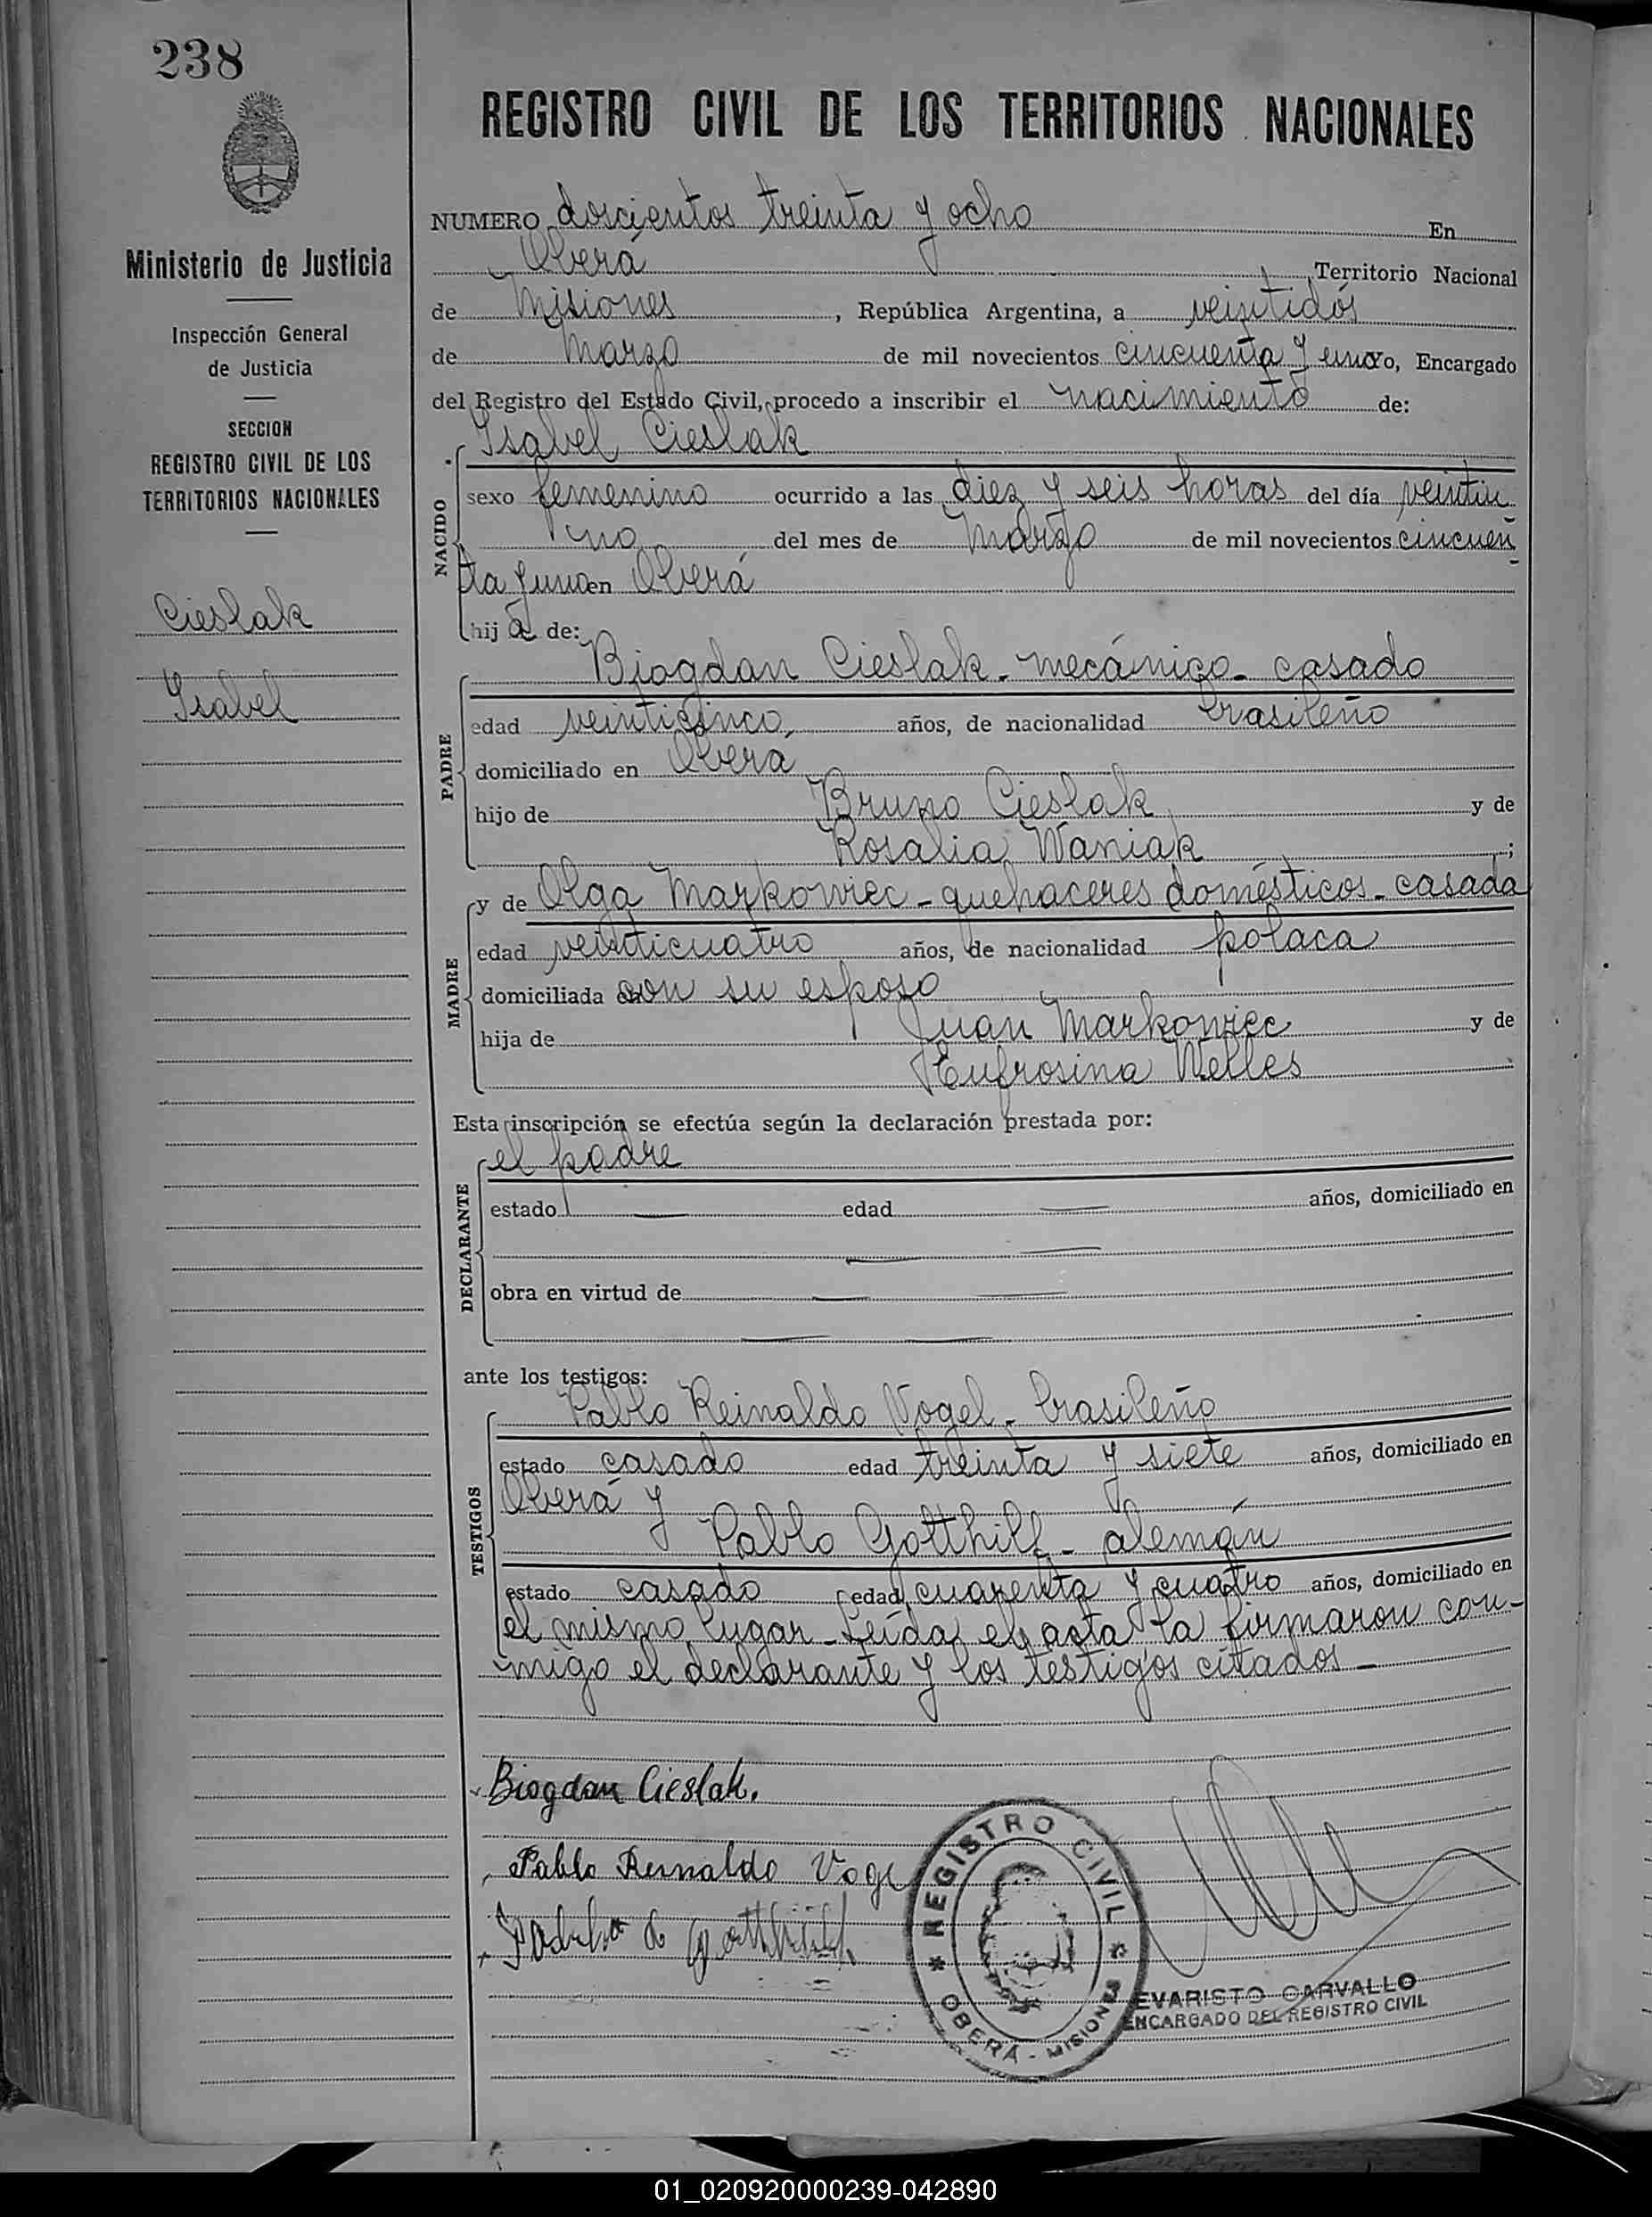 238
REGISTRO CIVIL DE LOS TERRITORIOS NACIONALES
Ministerio de Justicia
Inspección General
de Justicia
SECCION
REGISTRO CIVIL DE LOS
TERRITORIOS NACIONALES
Cieslak
Isabel
NUMERO doscientos treinta y ocho En
Oberá Territorio Nacional
de Misiones, República Argentina, a veintidós
de Marzo de mil novecientos cincuenta y uno yo, Encargado
del Registro del Estado Civil, procedo a inscribir el nacimiento de:
Isabel Cieslak
NACIDO
sexo femenino ocurrido a las diez y seis horas del día veintiu
no del mes de Marzo de mil novecientos cincuen
ta y uno en Oberá
hija de:
PADRE
Biogdan Cieslak - mecánico - casado
edad veinticinco, años, de nacionalidad brasileño
domiciliado en Oberá
hijo de Bruno Cieslak y de
Rosalia Waniak ;
MADRE
y de Olga Markowiec - quehaceres domésticos - casada
edad veinticuatro años, de nacionalidad polaca
domiciliada con su esposo
hija de Juan Markowiec y de
Eufrosina Welles
Esta inscripción se efectúa según la declaración prestada por:
DECLARANTE
el padre
estado — edad — años, domiciliado en
— —
obra en virtud de — —
— —
ante los testigos:
TESTIGOS
Pablo Reinaldo Vogel - brasileño
estado casado edad treinta y siete años, domiciliado en
Oberá y
Pablo Gotthilf - alemán
estado casado edad cuarenta y cuatro años, domiciliado en
el mismo lugar - Leída el acta la firmaron con-
migo el declarante y los testigos citados -
Biogdan Cieslak.
Pablo Reinaldo Vogel
REGISTRO CIVIL
OBERÁ - MISIONES
EVARISTO CARVALLO
ENCARGADO DEL REGISTRO CIVIL
01_020920000239-042890